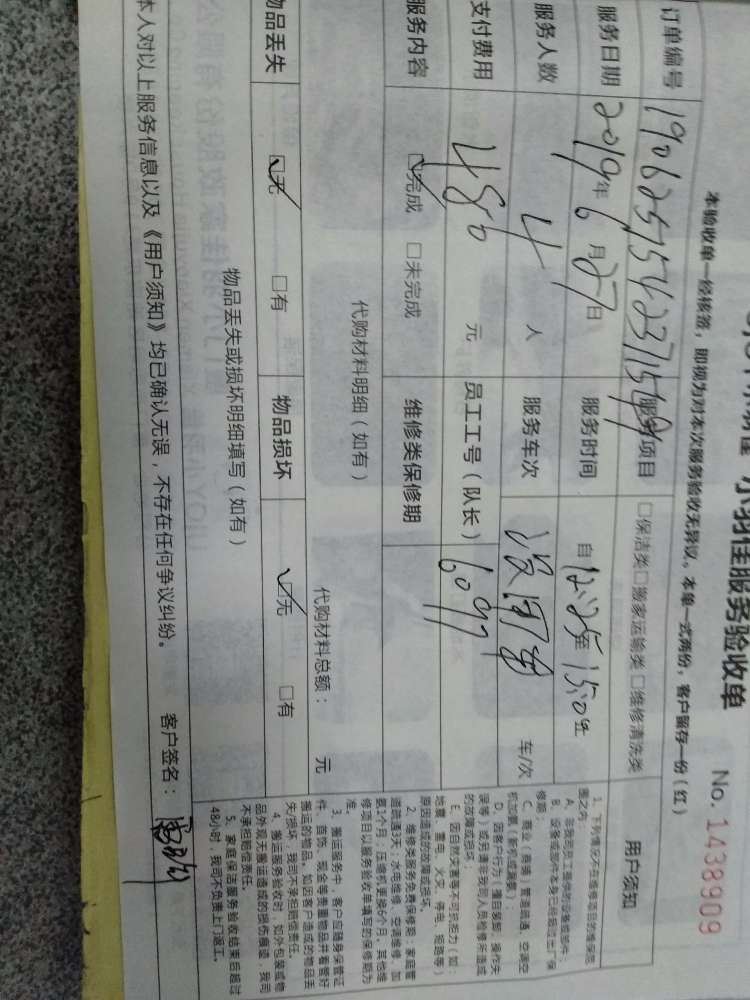 小羽佳服务验收单
No. 1438909
本验收单一经核签，即视为对本次服务验收无异议。本单一式两份，客户留存一份（红）
订单编号
服务项目 □保洁类□搬家运输类□维修清洗类
服务日期 2019年6月27日 服务时间 自12:25至15:04止
服务人数 4 人 服务车次 车/次
支付费用 486 元 员工工号（队长） 6097
服务内容 ☑完成 □未完成 维修类保修期
代购材料明细（如有）
代购材料总额： 元
物品丢失 ☑无 □有 物品损坏 ☑无 □有
物品丢失或损坏明细填写（如有）
本人对以上服务信息以及《用户须知》均已确认无误，不存在任何争议纠纷。 客户签名：
用户须知
1、下列情况不在维修项目的维保范
围之内：
A、非我司员工提供的设备或部件；
B、设备或部件本身已经超过出厂保
修期；
C、商业（商铺）管道疏通、空调空
机加氟（新机或漏氟）；
D、因客户行为（擅自装卸、操作失
误等）或另请非我司人员检修所造成
的故障或损坏；
E、因自然灾害等不可抗拒力（如：
地震、雷电、火灾、停电、短路等）
原因造成的故障或损坏。
2、维修类服务免费保修期：家庭管
道疏通3天，水电维修、空调维修、加
氨1个月；压缩机更换6个月。其他维
修项目以服务验收单填写的保修期为
准。
3、搬运服务中，客户应随身保管证
件、首饰、现金等贵重物品并看管好
搬运的物品，如因客户造成的物品丢
失/损坏，我司不承担赔偿责任。
4、搬运服务验收时，如外包装或物
品外观无搬运造成的损伤痕迹，我司
不承担赔偿责任。
5、家庭保洁服务验收结束后超过
48小时，我司不负责上门返工。